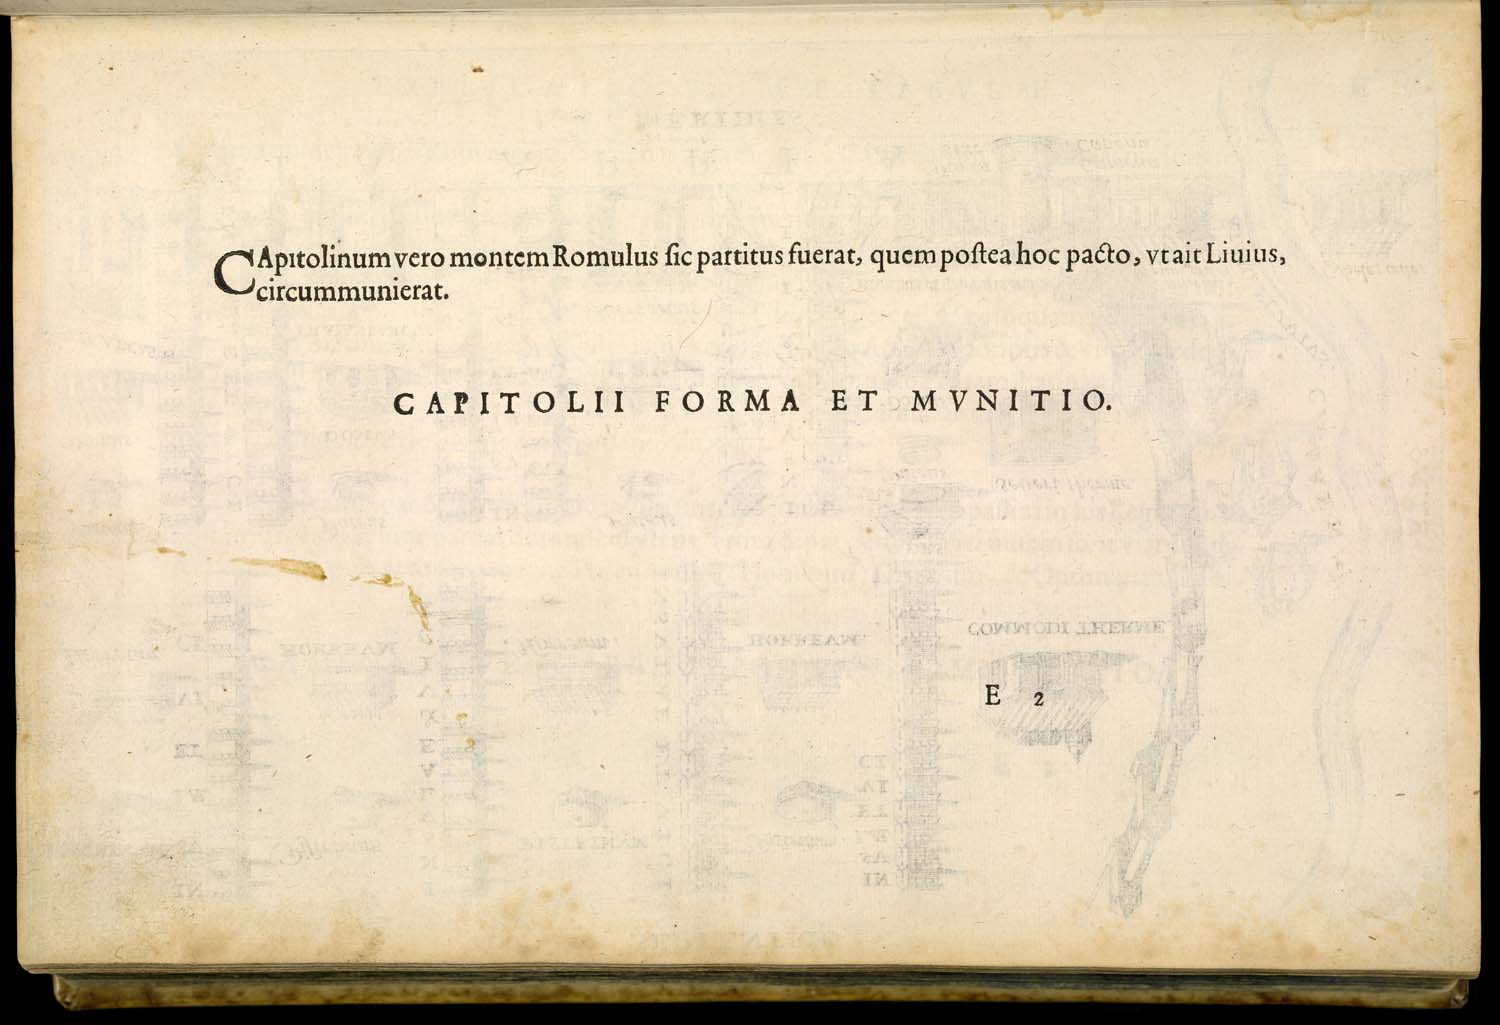 CApitolinum vero montem Romulus ſic partitus fuerat, quem poſtea hoc pacto, vt ait Liuius,
circummunierat.
CAPITOLII FORMA ET MVNITIO.
E 2